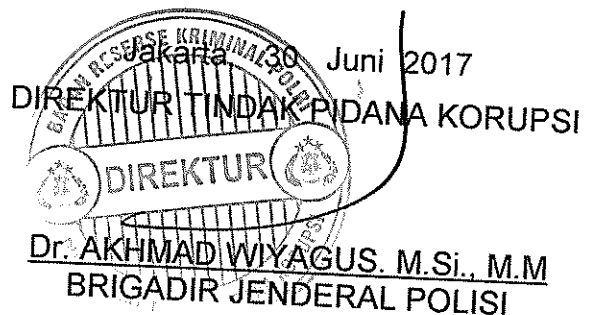 Jakarta, 30 Juni 2017
DIREKTUR TINDAK PIDANA KORUPSI
BADAN RESERSE KRIMINAL POLRI
DIREKTUR
Dr. AKHMAD WIYAGUS. M.Si., M.M
BRIGADIR JENDERAL POLISI